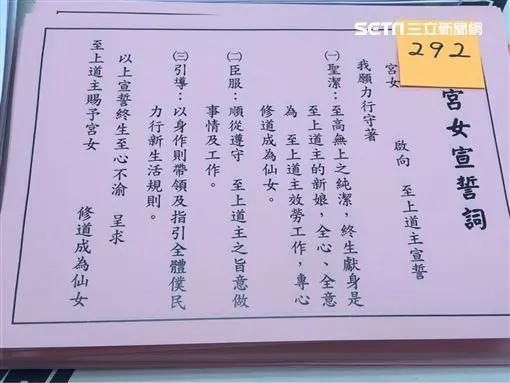 SETN三立新聞網
292
宮女宣誓詞
宮女　　　啟向　至上道主宣誓
我願力行守著
㈠聖潔：至高無上之純潔，終生獻身是
至上道主的新娘，全心、全意
為　至上道主效勞工作，專心
修道成為仙女。
㈡臣服：順從遵守　至上道主之旨意做
事情及工作。
㈢引導：以身作則帶領及指引全體僕民
力行新生活規則。
以上宣誓終生至心不渝　呈求
至上道主賜予宮女
修道成為仙女